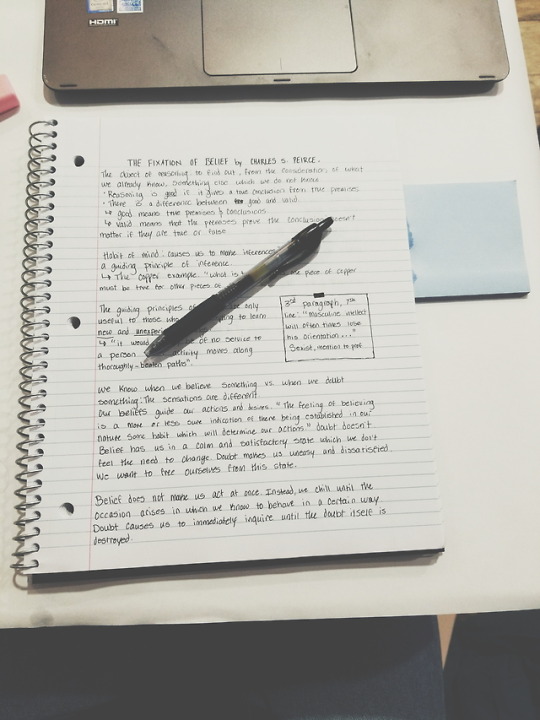 HDMI
THE FIXATION OF BELIEF by CHARLES S. PEIRCE.
The object of reasoning to find out, from the consideration of what
we already know, something else which we do not know.
• Reasoning is good if it gives a true conclusion from true premises
• There is a difference between good and valid.
↳ good means true premises & conclusions
↳ valid means that the premises prove the conclusion doesn't
matter if they are true or false
Habit of mind: causes us to make inferences
a guiding principle of inference.
↳ The copper example. "what is piece of copper
must be true for other pieces of
The guiding principles of are only
useful to those who to learn
new and
↳ "it would of no service to
a person activity moves along
thoroughly-beaten paths".
3rd paragraph, 7th
line: "masculine intellect
will often times lose
his orientation..."
Sexist, mention to prof.
We know when we believe something vs. when we doubt
something: The sensations are different.
Our beliefs guide our actions and desires. "The feeling of believing
is a more or less sure indication of there being established in our
nature some habit which will determine our actions" doubt doesn't.
Belief has us in a calm and satisfactory state which we don't
feel the need to change. Doubt makes us uneasy and dissatisfied.
We want to free ourselves from this state.
Belief does not make us act at once. Instead, we chill until the
occasion arises in which we know to behave in a certain way.
Doubt causes us to immediately inquire until the doubt itself is
destroyed.